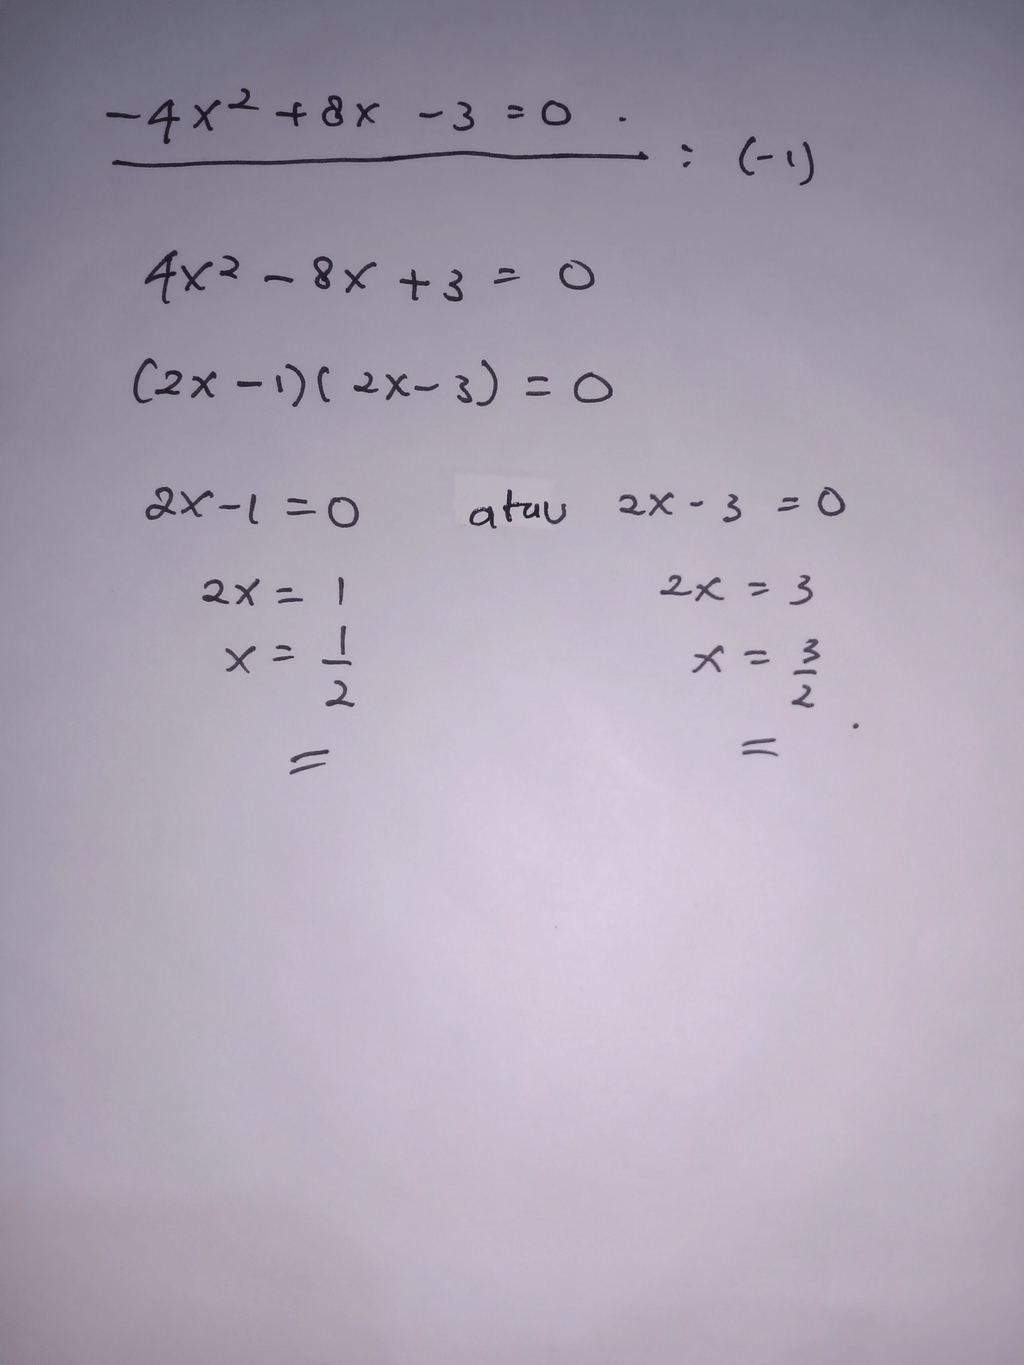 -4x² + 8x - 3 = 0 .
: (-1)
4x² - 8x + 3 = 0
(2x - 1)(2x - 3) = 0
2x - 1 = 0 atau 2x - 3 = 0
2x = 1 2x = 3
x = 1/2 x = 3/2 .
= =